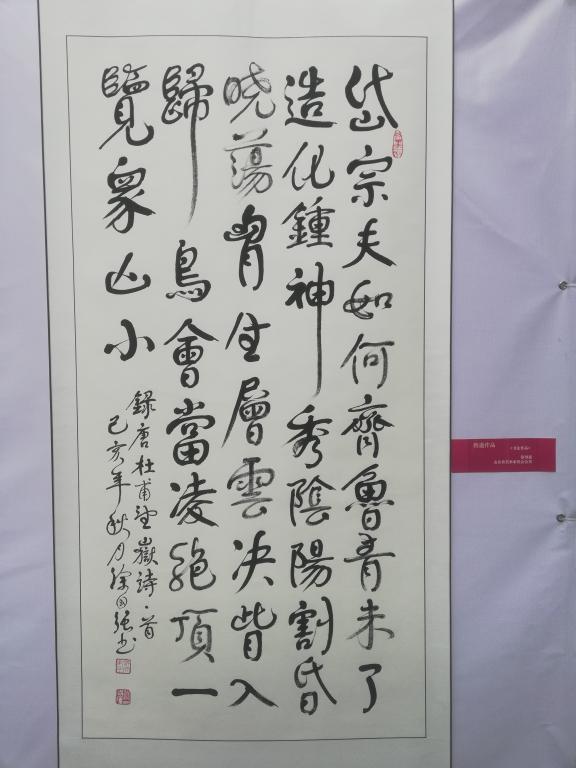 岱宗夫如何齊魯青未了
造化鍾神秀陰陽割昏
晓蕩胷生層雲决眥入
歸鳥會當凌絶頂一
覽衆山小
録唐杜甫望嶽詩一首
己亥年秋月徐国強书
《书法作品》